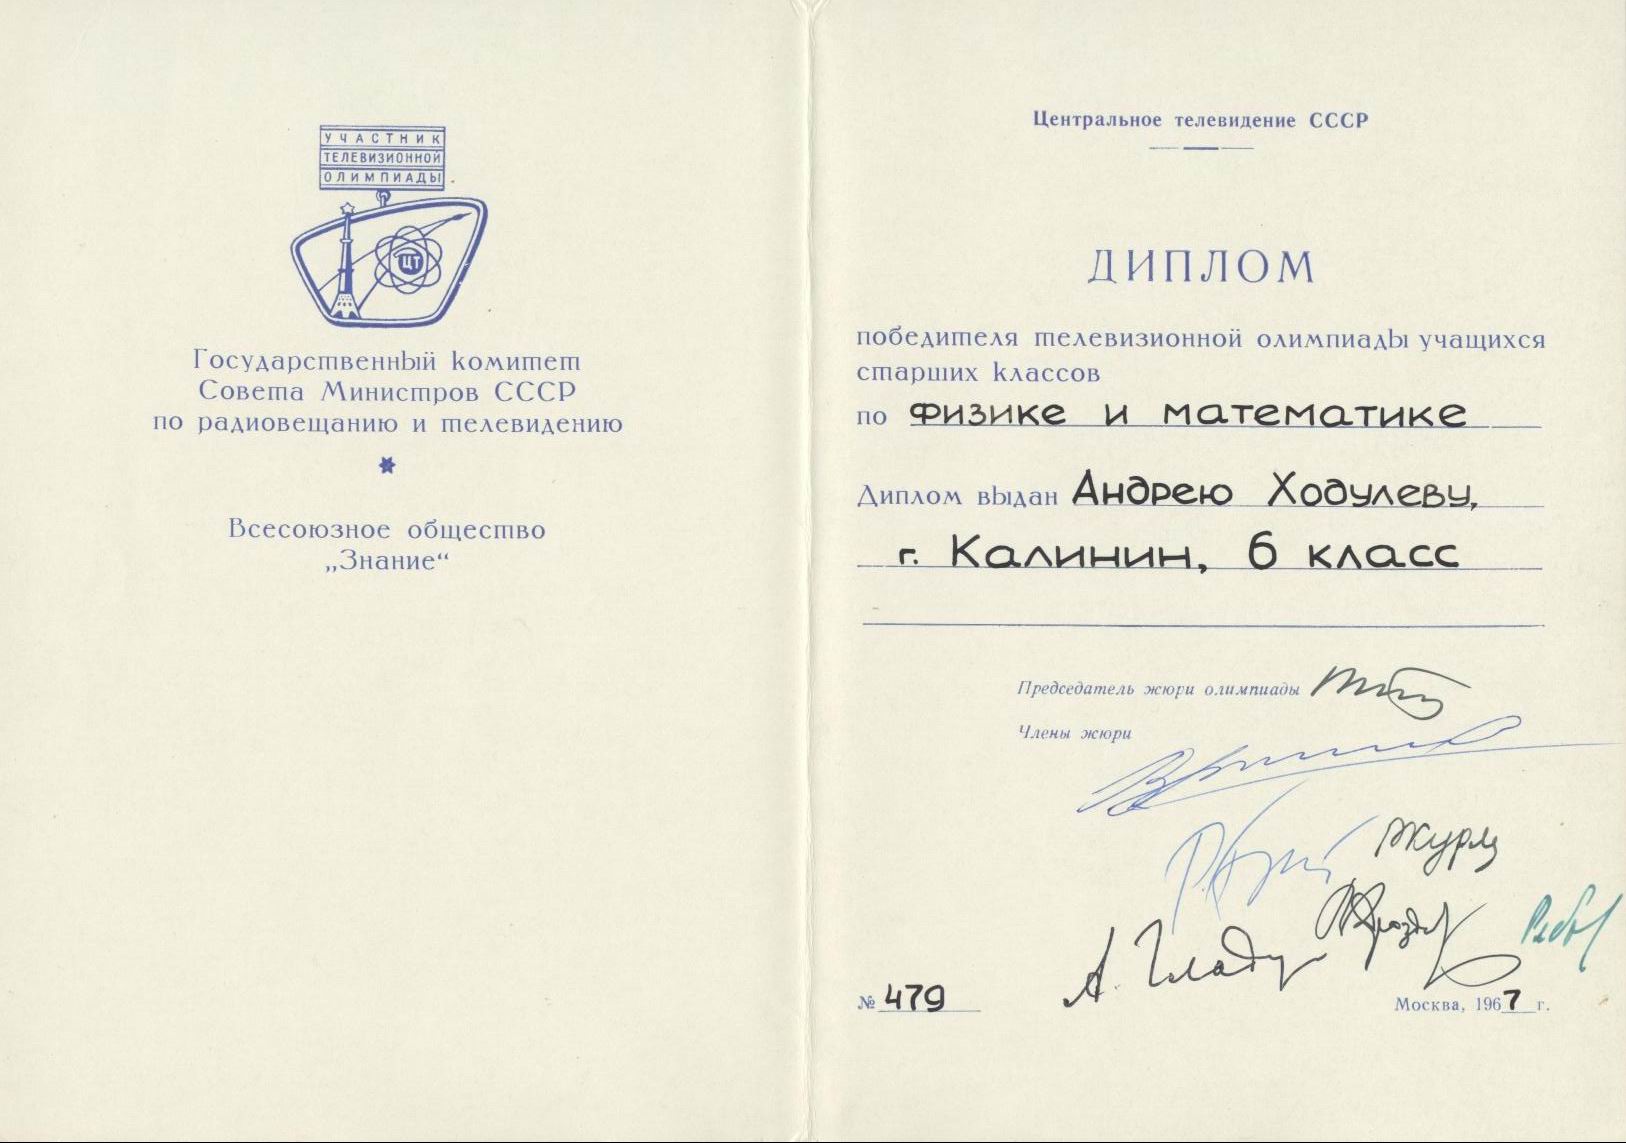 УЧАСТНИК
ТЕЛЕВИЗИОННОЙ
ОЛИМПИАДЫ
ЦТ
Государственный комитет
Совета Министров СССР
по радиовещанию и телевидению
Всесоюзное общество
„Знание“
Центральное телевидение СССР
ДИПЛОМ
победителя телевизионной олимпиады учащихся
старших классов
по физике и математике
Диплом выдан Андрею Ходулеву,
г. Калинин, 6 класс
Председатель жюри олимпиады
Члены жюри
№ 479
Москва, 1967 г.